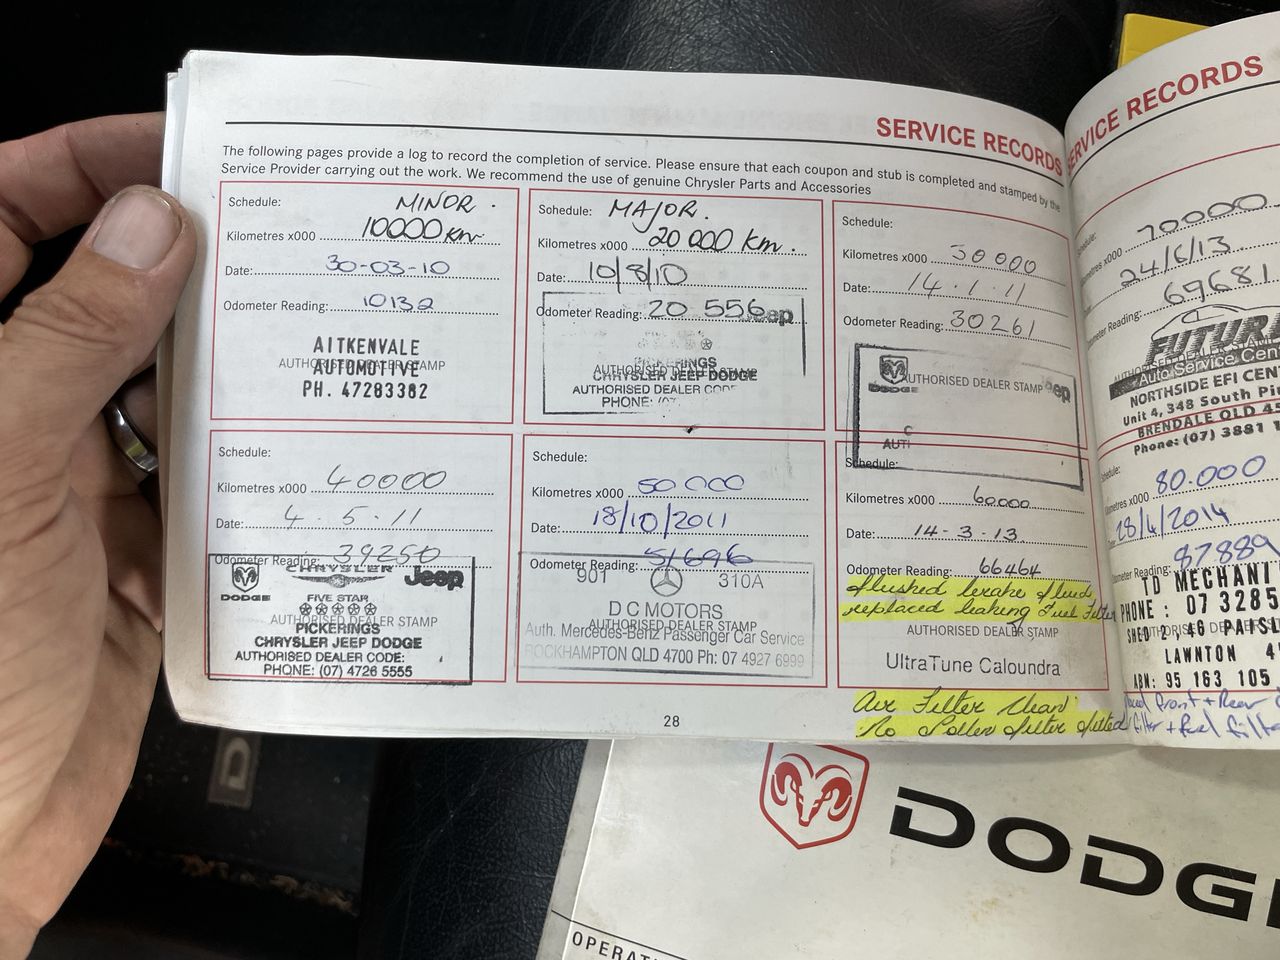 SERVICE RECORDS
The following pages provide a log to record the completion of service. Please ensure that each coupon and stub is completed and stamped by the
Service Provider carrying out the work. We recommend the use of genuine Chrysler Parts and Accessories
Schedule: MINOR.
Kilometres x000 10000 km
Date: 30-03-10
Odometer Reading: 10132
AITKENVALE
AUTHORISED DEALER STAMP
AUTOMOTIVE
PH. 47283382
Schedule: MAJOR.
Kilometres x000 20 000 km.
Date: 10/8/10
Odometer Reading: 20 556
PICKERINGS
AUTHORISED DEALER STAMP
CHRYSLER JEEP DODGE
AUTHORISED DEALER
PHONE:
Schedule:
Kilometres x000 30000
Date: 14.1.11
Odometer Reading: 30261
AUTHORISED DEALER STAMP
DODGE
Schedule:
Kilometres x000 40000
Date: 4.5.11
Odometer Reading: 39250
CHRYSLER
Jeep
DODGE
FIVE STAR
AUTHORISED DEALER STAMP
PICKERINGS
CHRYSLER JEEP DODGE
AUTHORISED DEALER CODE:
PHONE: (07) 4726 5555
Schedule:
Kilometres x000 50000
Date: 18/10/2011
Odometer Reading: 51696
901 310A
D C MOTORS
AUTHORISED DEALER STAMP
Auth. Mercedes-Benz Passenger Car Service
ROCKHAMPTON QLD 4700 Ph: 07 4927 6999
Schedule:
Kilometres x000 60000
Date: 14-3-13
Odometer Reading: 66464
flushed brake fluid
replaced leaking Fuel Filter
AUTHORISED DEALER STAMP
UltraTune Caloundra
Air Filter Clean
No Pollen filter fitted
28
SERVICE RECORDS
70000
24/6/13
69681
FUTUR
Auto Service Cen
NORTHSIDE EFI CEN
Unit 4, 348 South Pi
BRENDALE QLD 45
Phone: (07) 3881 1
80.000
28/4/2014
87889
TD MECHANI
PHONE: 07 3285
SHED 2, 46 PAISL
LAWNTON 4
ABN: 95 163 105
front + Rear
filter + fuel filte
DODGE
OPERAT